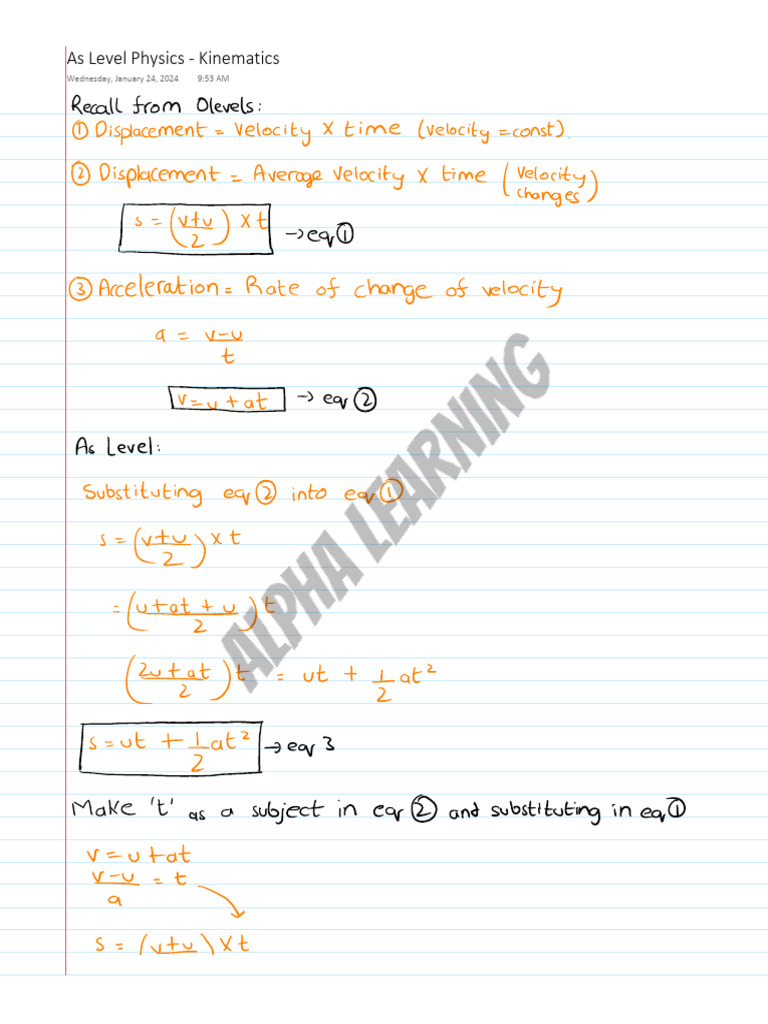 As Level Physics - Kinematics
Wednesday, January 24, 2024 9:53 AM
Recall from Olevels:
① Displacement = Velocity × time (velocity = const).
② Displacement = Average Velocity × time (Velocity changes)
s = (v+u/2) × t → eq ①
③ Acceleration = Rate of change of velocity
a = v-u/t
v = u + at → eq ②
As Level:
Substituting eq ② into eq ①
s = (v+u/2) × t
= (u+at+u/2) t
(2u+at/2) t = ut + 1/2 at²
s = ut + 1/2 at² → eq 3
Make 't' as a subject in eq ② and substituting in eq ①
v = u + at
v-u/a = t
s = (v+u) × t
ALPHA LEARNING